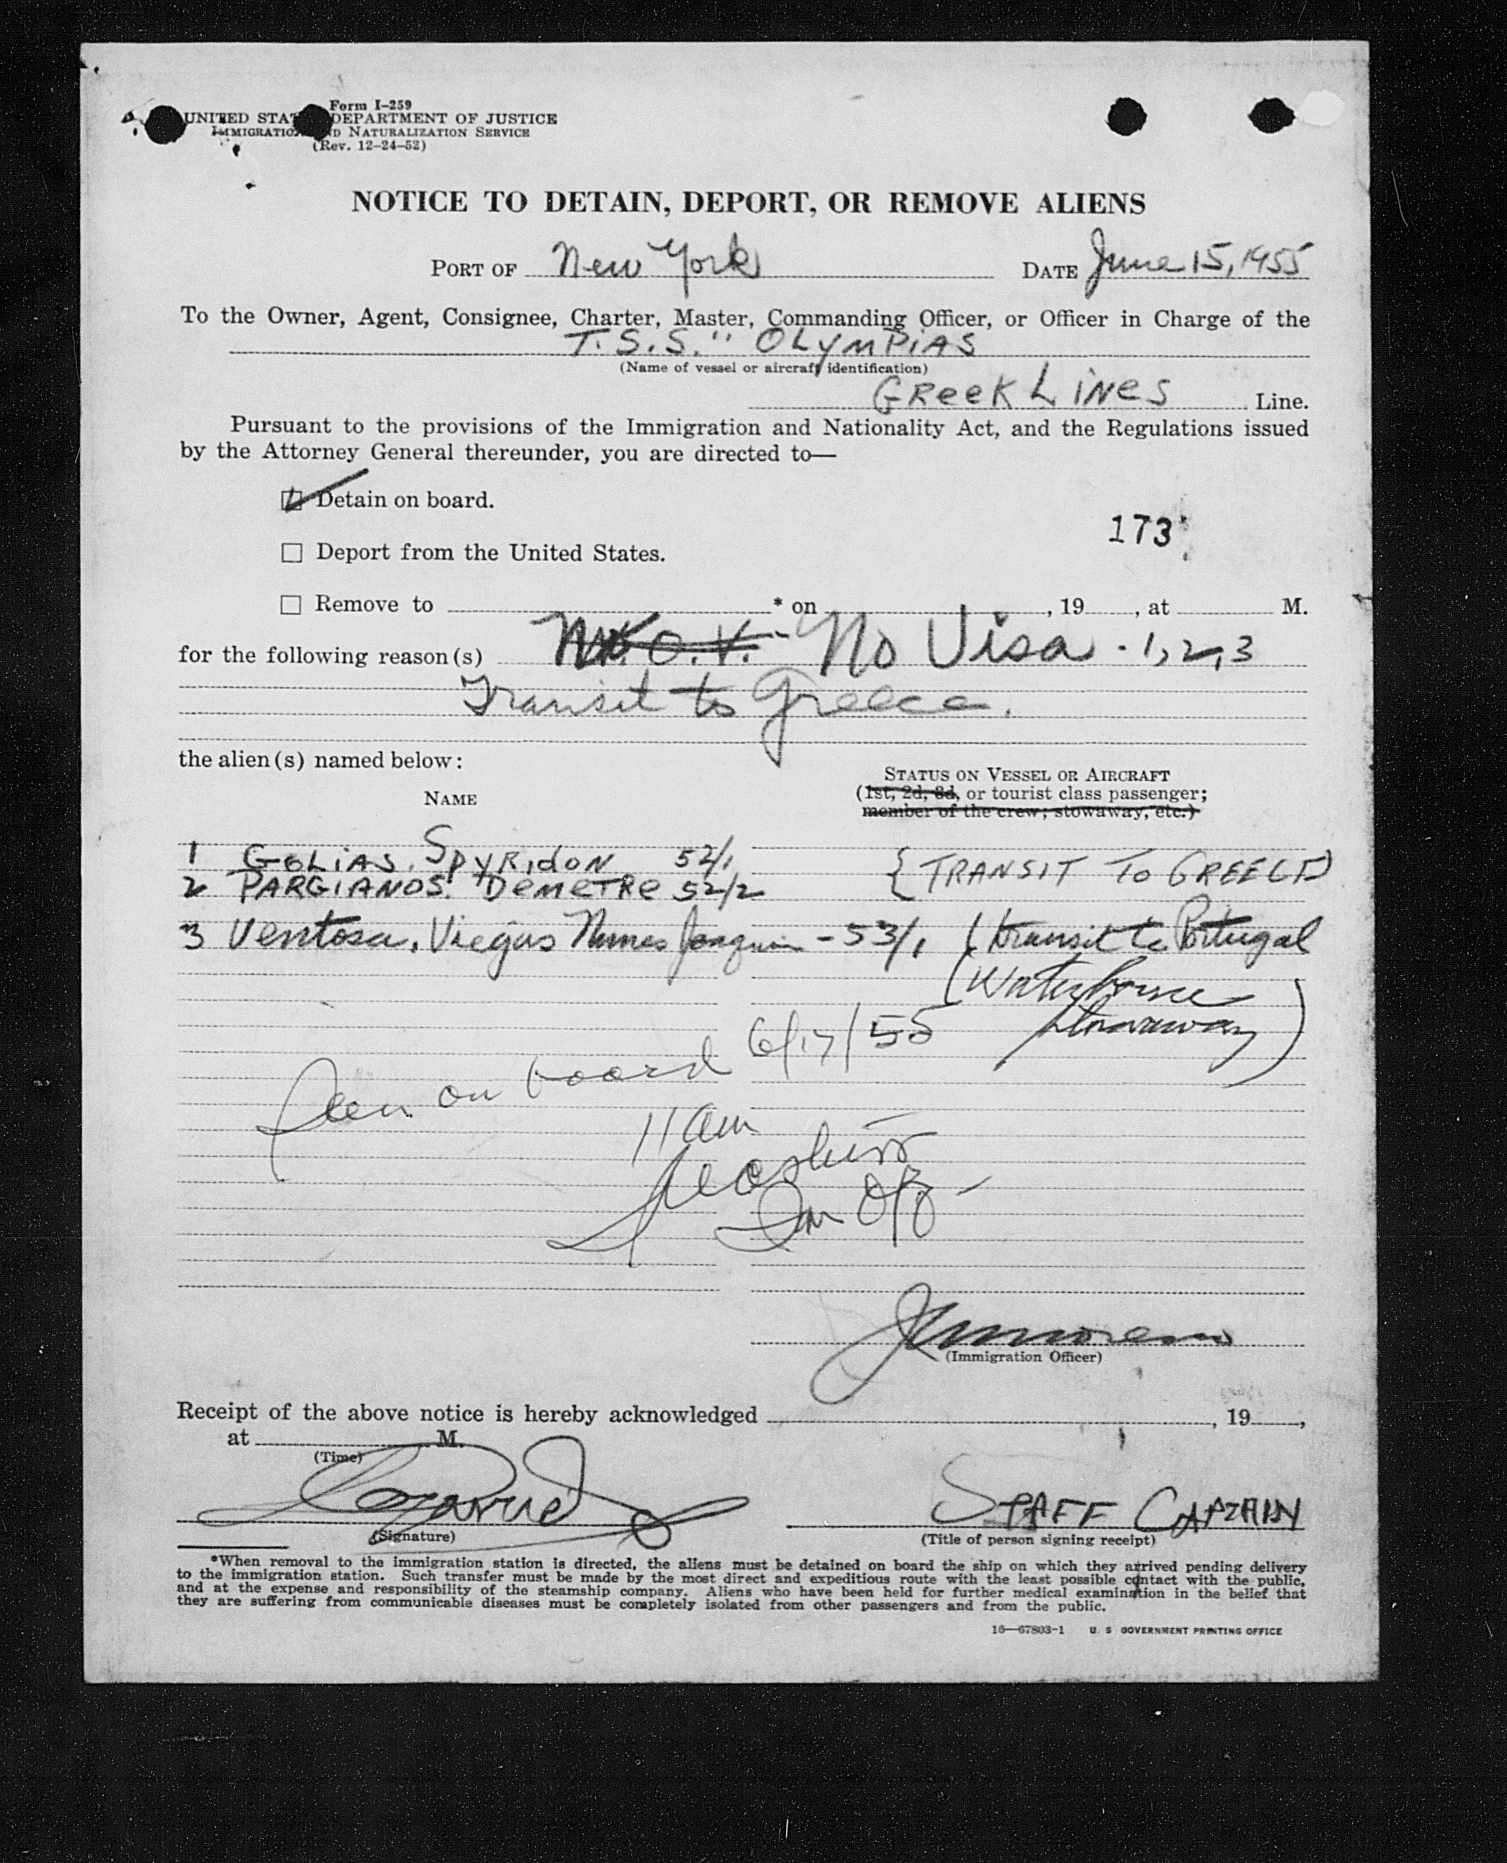 Form I-259
UNITED STATES DEPARTMENT OF JUSTICE
IMMIGRATION AND NATURALIZATION SERVICE
(Rev. 12-24-52)
NOTICE TO DETAIN, DEPORT, OR REMOVE ALIENS
PORT OF New York DATE June 15, 1955
To the Owner, Agent, Consignee, Charter, Master, Commanding Officer, or Officer in Charge of the
T.S.S. " OLYMPIAS
(Name of vessel or aircraft identification)
GREEK LINES Line.
Pursuant to the provisions of the Immigration and Nationality Act, and the Regulations issued
by the Attorney General thereunder, you are directed to—
Detain on board.
173
Deport from the United States.
Remove to * on , 19 , at M.
for the following reason(s) O.V. - No Visa - 1, 2, 3
Transit to Greece.
the alien(s) named below:
STATUS ON VESSEL OR AIRCRAFT
NAME (1st, 2d, 3d, or tourist class passenger;
member of the crew; stowaway, etc.)
1 GOLIAS. SPYRIDON 52/1
2 PARGIANOS. DEMETRE 52/2 { TRANSIT TO GREECE)
3 Ventosa, Viegas Nunes Joaquin - 53/1 (transit to Portugal
(Waterborne
stowaway)
Seen on board 6/17/55
11 am
Im Off
(Immigration Officer)
Receipt of the above notice is hereby acknowledged , 19 ,
at M.
(Time)
STAFF CAPTAIN
(Signature) (Title of person signing receipt)
*When removal to the immigration station is directed, the aliens must be detained on board the ship on which they arrived pending delivery
to the immigration station. Such transfer must be made by the most direct and expeditious route with the least possible contact with the public,
and at the expense and responsibility of the steamship company. Aliens who have been held for further medical examination in the belief that
they are suffering from communicable diseases must be completely isolated from other passengers and from the public.
16—67803-1 U. S. GOVERNMENT PRINTING OFFICE